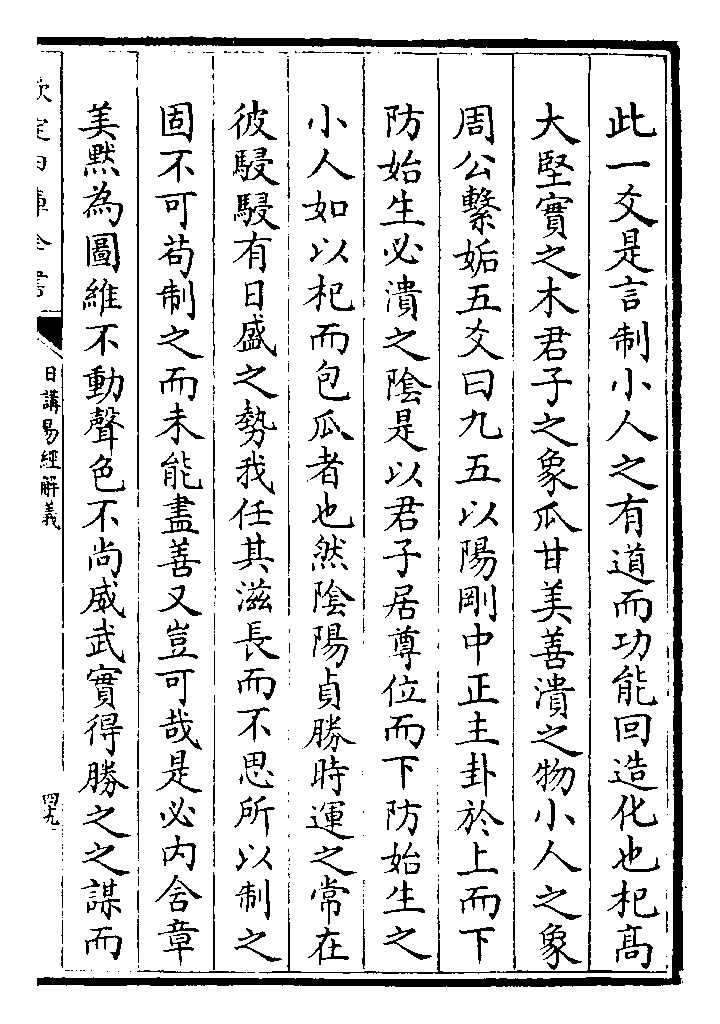 此一爻是言制小人之有道而功能回造化也杞髙
大堅實之木君子之象瓜甘美善潰之物小人之象
周公繫姤五爻曰九五以陽剛中正主卦於上而下
防始生必潰之陰是以君子居尊位而下防始生之
小人如以杞而包瓜者也然陰陽貞勝時運之常在
彼駸駸有日盛之勢我任其滋長而不思所以制之
固不可茍制之而未能盡善又豈可哉是必内含章
美黙為圖維不動聲色不尚威武實得勝之之謀而
欽定四庫全書
日講易經解義
四九